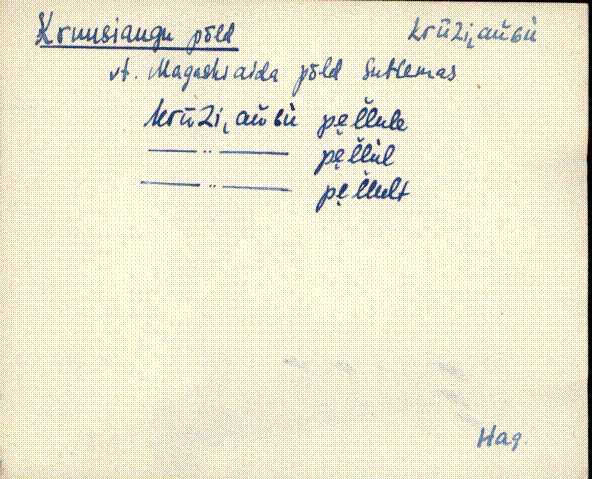 Kruusiaugu põld krūzi̮ aŭɢù
vt. Magasiaida põld Sutlemas
krūzi̮ aŭɢù pe̮l̆lule
—— " —— pe̮l̆lùl
—— " —— pe̮l̆lult
Hag.